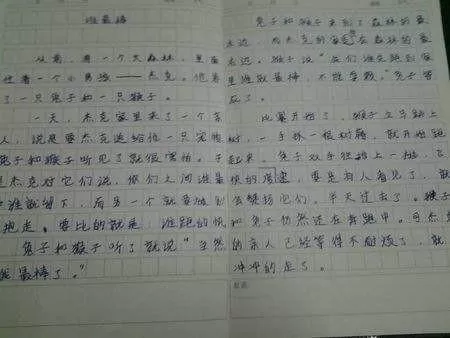 谁最棒
从前，有一个大森林，里面
住着一个小男孩——杰克。他养
了一只兔子和一只猴子。
一天，杰克家里来了一个客
人，说是要杰克送给他一只宠物
兔子和猴子听见了就很害怕。于
是杰克对它们说，你们之间谁最
谁就留下，而另一个就要被别
抱走。要比的就是：谁跑的快
兔子和猴子听了就说"当然
我最棒了。"
兔子和猴子来到了森林的最
边，而杰克的家在森林的最
边。猴子说"我们谁先跑到家
里谁就最棒，不能拿数。"兔子答
应了。
比赛开始了，猴子立马跳上
树，一手抓一根树藤，就开始跑
起来。兔子双手往路上一趴，飞
快的
和兔子仍然还在奔跑中。可杰克
的亲人已经等得不耐烦了，就
冲冲的走了。